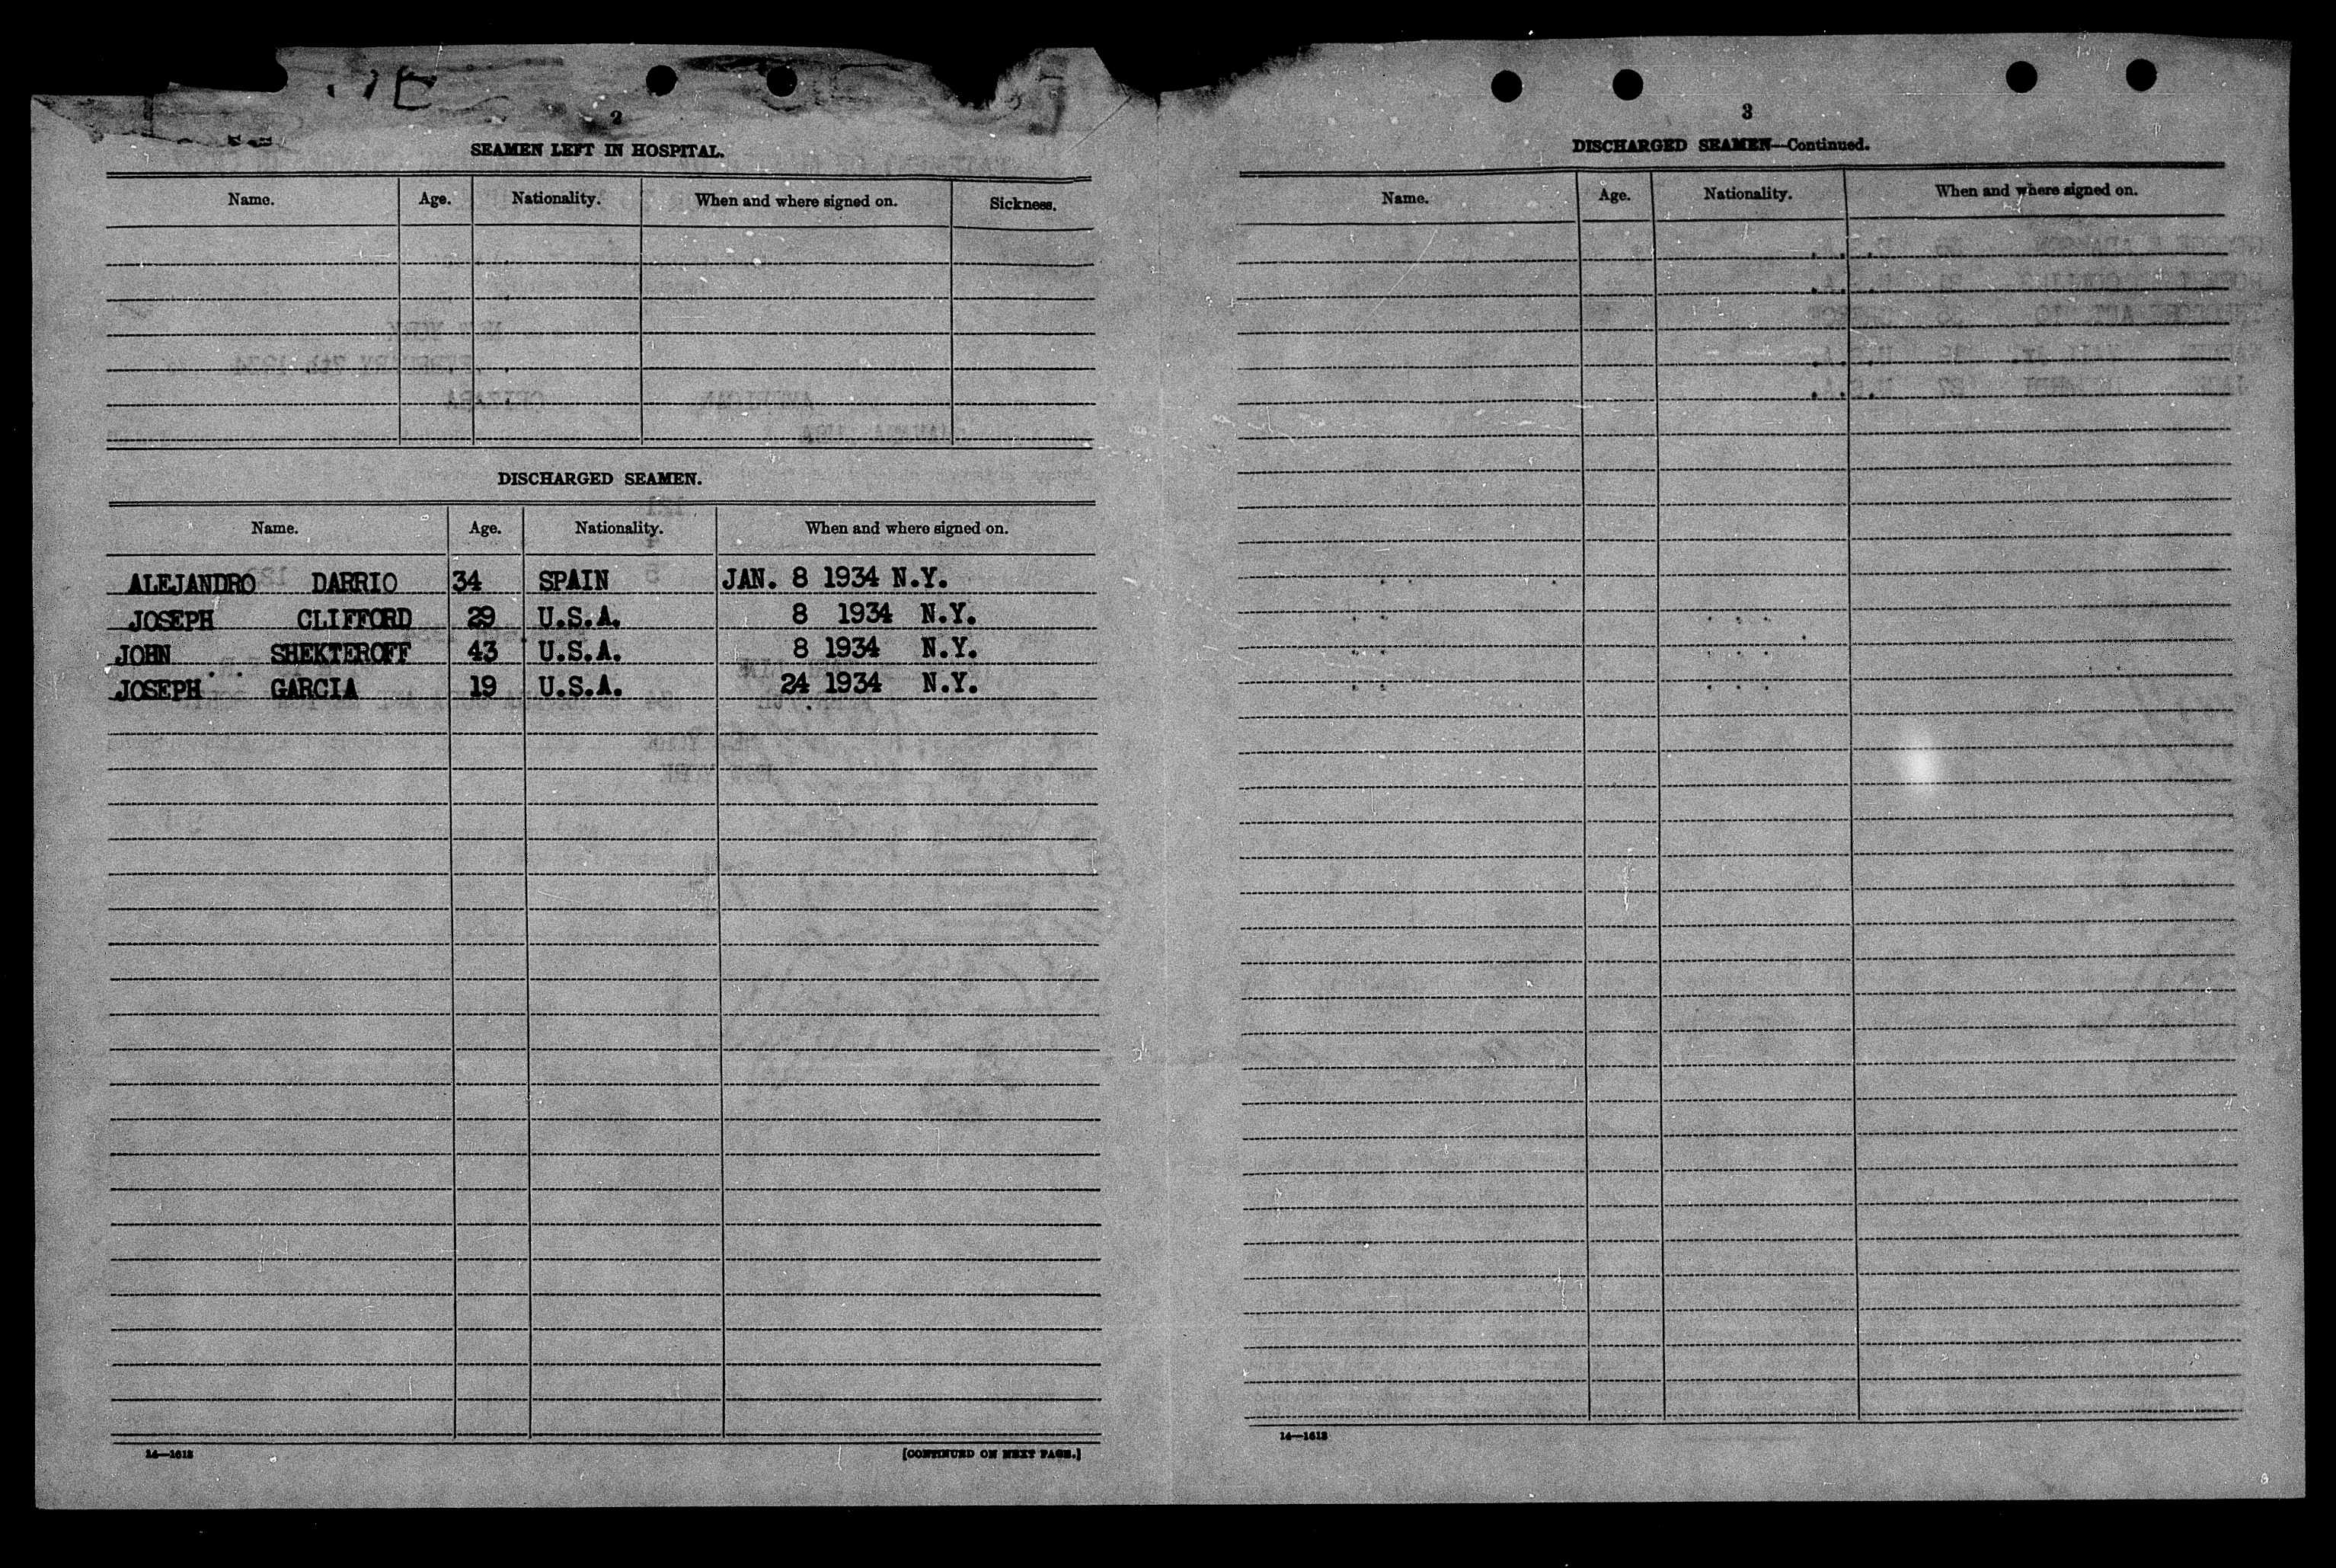 2
SEAMEN LEFT IN HOSPITAL.
Name. Age. Nationality. When and where signed on. Sickness.
DISCHARGED SEAMEN.
Name. Age. Nationality. When and where signed on.
ALEJANDRO DARRIO 34 SPAIN JAN. 8 1934 N.Y.
JOSEPH CLIFFORD 29 U.S.A. 8 1934 N.Y.
JOHN SHEKTEROFF 43 U.S.A. 8 1934 N.Y.
JOSEPH GARCIA 19 U.S.A. 24 1934 N.Y.
14—1613
[CONTINUED ON NEXT PAGE.]
3
DISCHARGED SEAMEN—Continued.
Name. Age. Nationality. When and where signed on.
14—1613